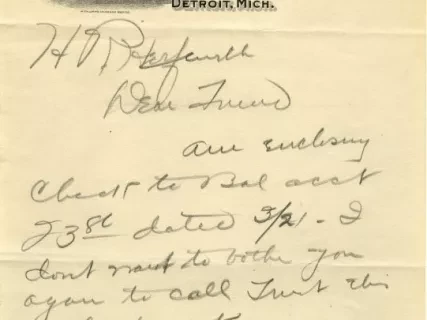 DETROIT, MICH.
H P
Dear Friend
am enclosing
Check to Bal acct
23 80 dated 3/21 - I
dont want to bother you
again to call Trust this